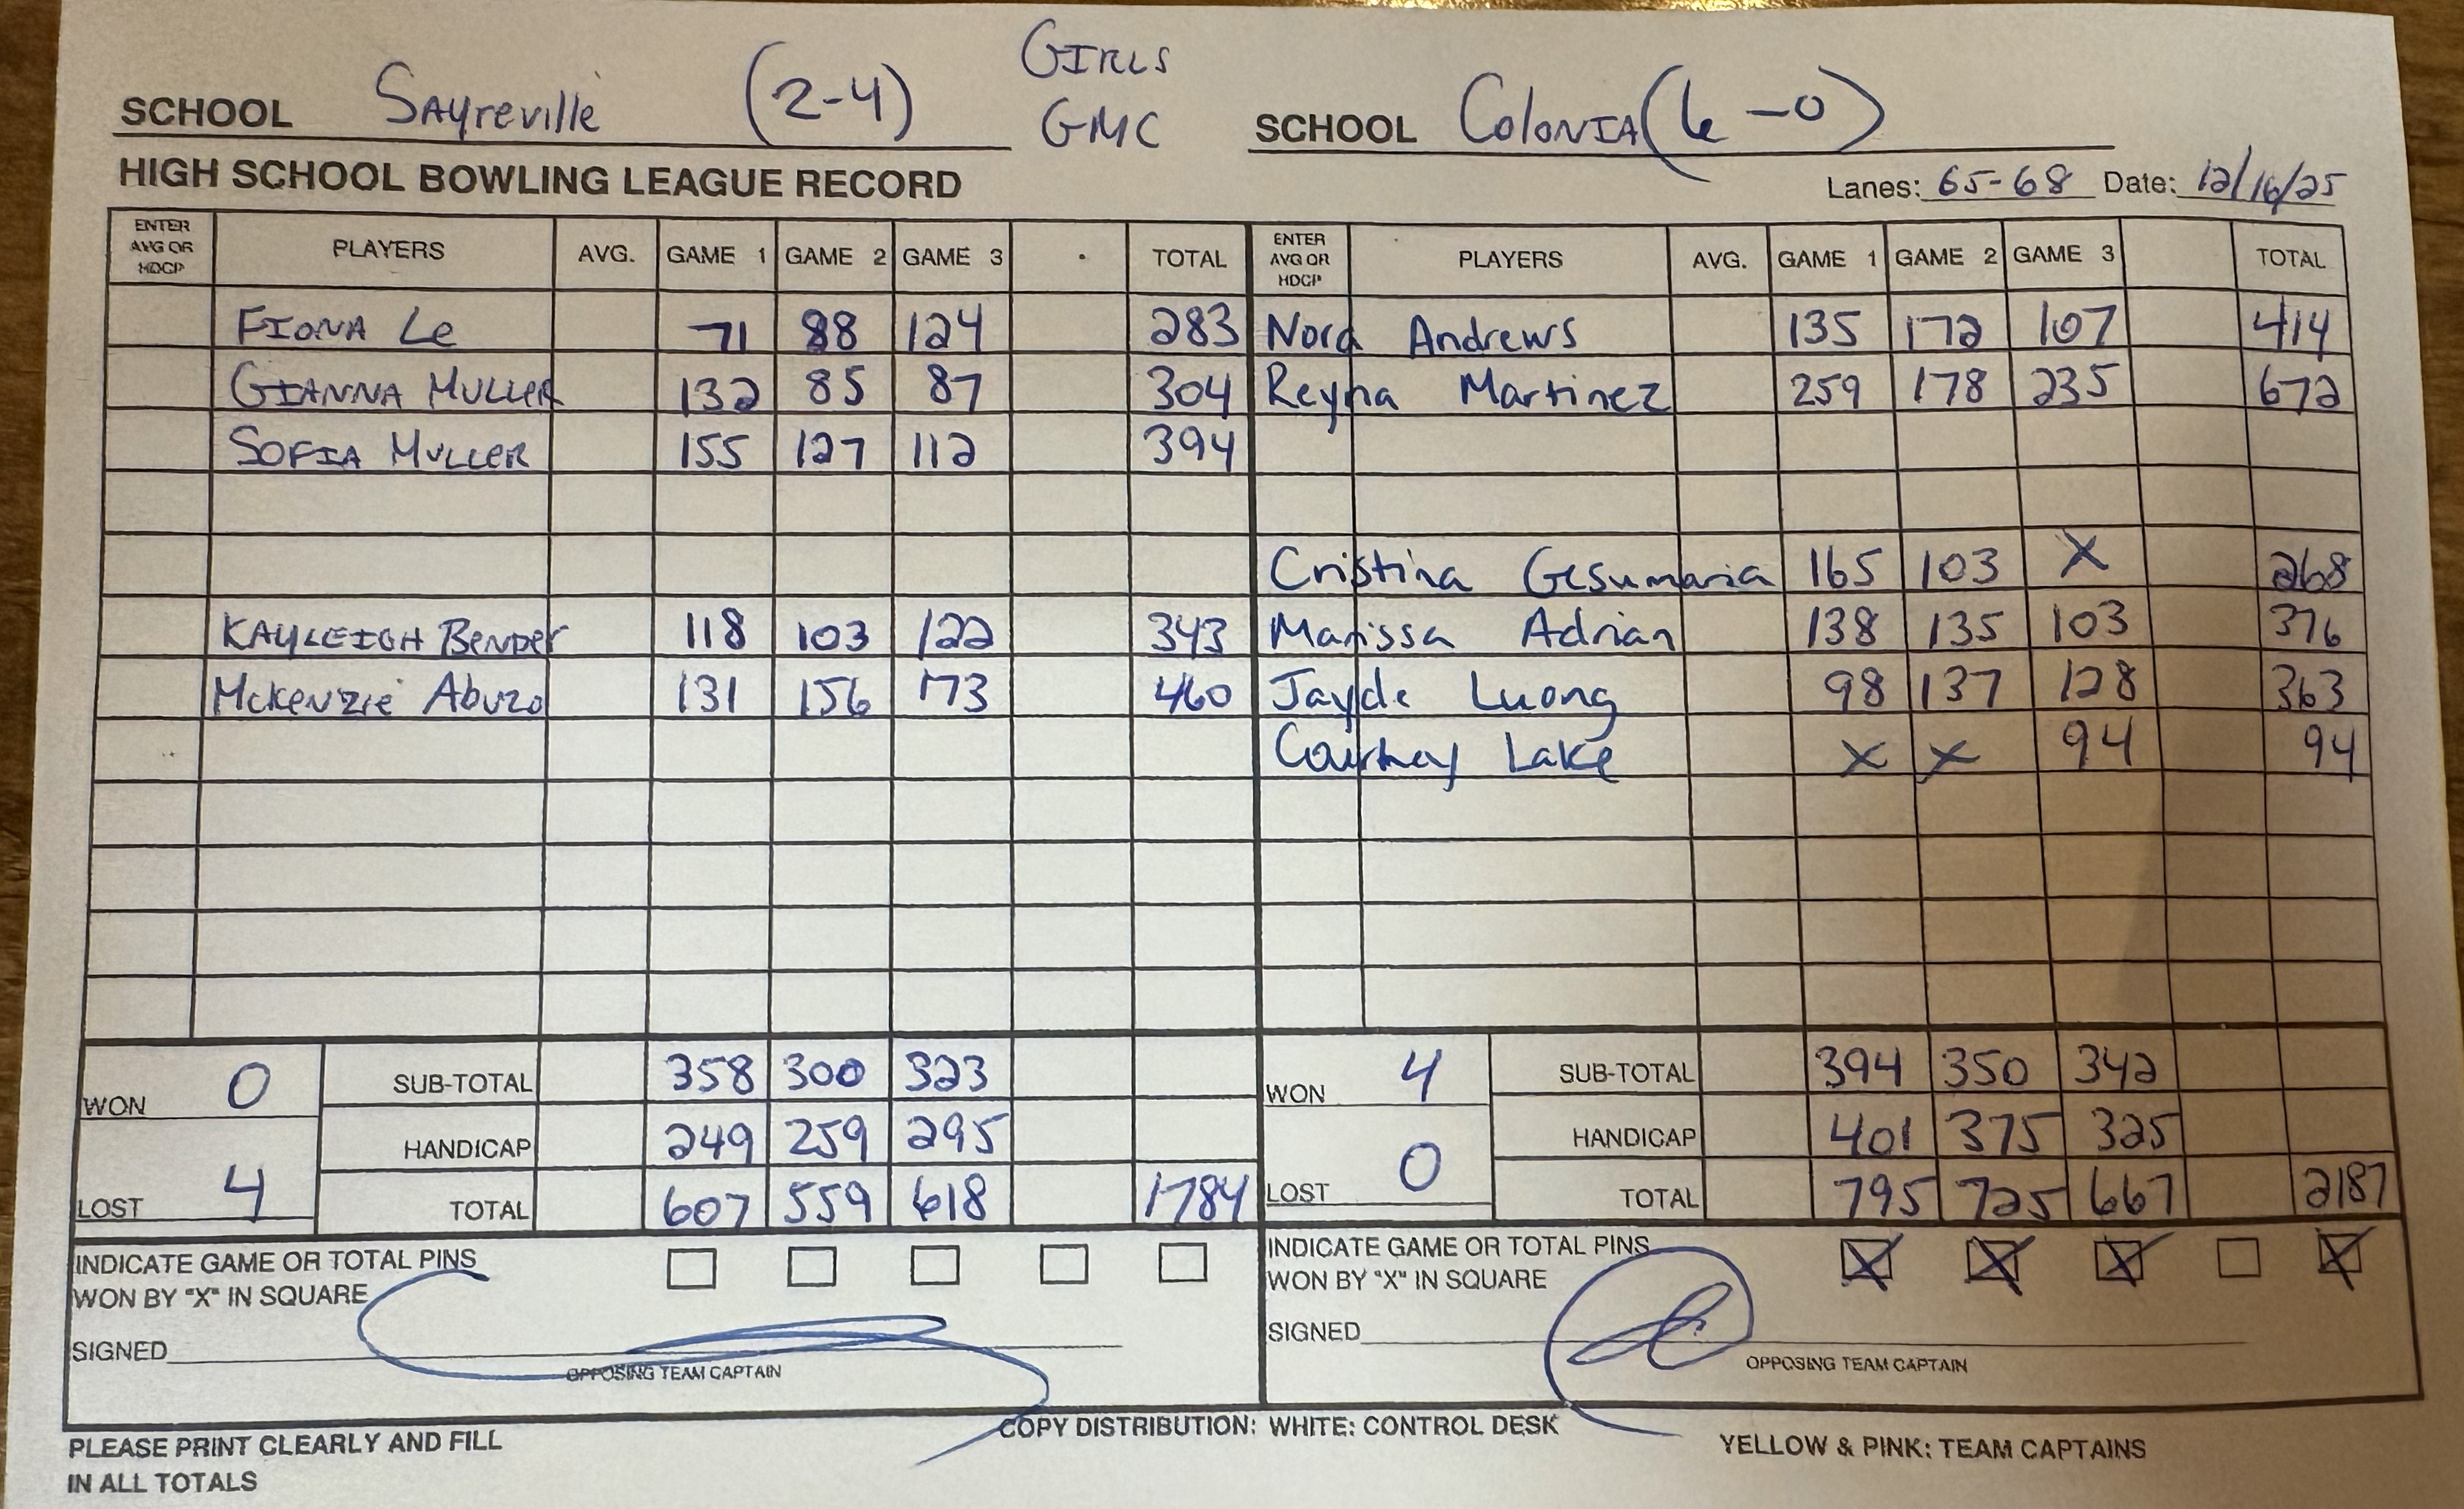 GIRLS
SCHOOL Sayreville (2-4) GMC SCHOOL Colonia (6-0)
HIGH SCHOOL BOWLING LEAGUE RECORD Lanes: 65-68 Date: 12/16/25
ENTER AVG OR HDCP PLAYERS AVG. GAME 1 GAME 2 GAME 3 TOTAL ENTER AVG OR HDCP PLAYERS AVG. GAME 1 GAME 2 GAME 3 TOTAL
FIONA Le 71 88 124 283 Nora Andrews 135 172 107 414
GIANNA MULLER 132 85 87 304 Reyna Martinez 259 178 235 672
SOFIA MULLER 155 127 112 394
Cristina Gesumaria 165 103 X 268
KAYLEIGH Bender 118 103 122 343 Marissa Adrian 138 135 103 376
McKenzie Abuzo 131 156 173 460 Jayde Luong 98 137 128 363
Courtney Lake X X 94 94
WON 0 SUB-TOTAL 358 300 323 WON 4 SUB-TOTAL 394 350 342
HANDICAP 249 259 295 HANDICAP 401 375 325
LOST 4 TOTAL 607 559 618 1784 LOST 0 TOTAL 795 725 667 2187
INDICATE GAME OR TOTAL PINS INDICATE GAME OR TOTAL PINS
WON BY "X" IN SQUARE WON BY "X" IN SQUARE X X X X
SIGNED SIGNED
OPPOSING TEAM CAPTAIN OPPOSING TEAM CAPTAIN
PLEASE PRINT CLEARLY AND FILL COPY DISTRIBUTION: WHITE: CONTROL DESK YELLOW & PINK: TEAM CAPTAINS
IN ALL TOTALS